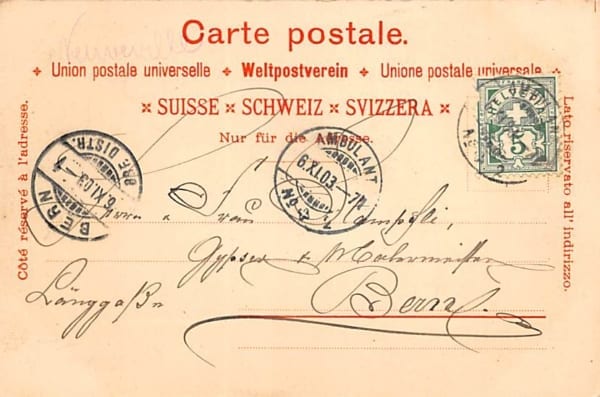 Neuveville
Carte postale.
Union postale universelle Weltpostverein Unione postale universale
SUISSE SCHWEIZ SVIZZERA
Nur für die Adresse.
Côté réservé à l'adresse.
Lato riservato all' indirizzo.
HELVETIA
5
AMBULANT
6.XI.03-7¼
BRF. DISTR.
6.XI.03
BERN
Herrn u Frau
Gypser & Malermeister
Länggaße Bern.